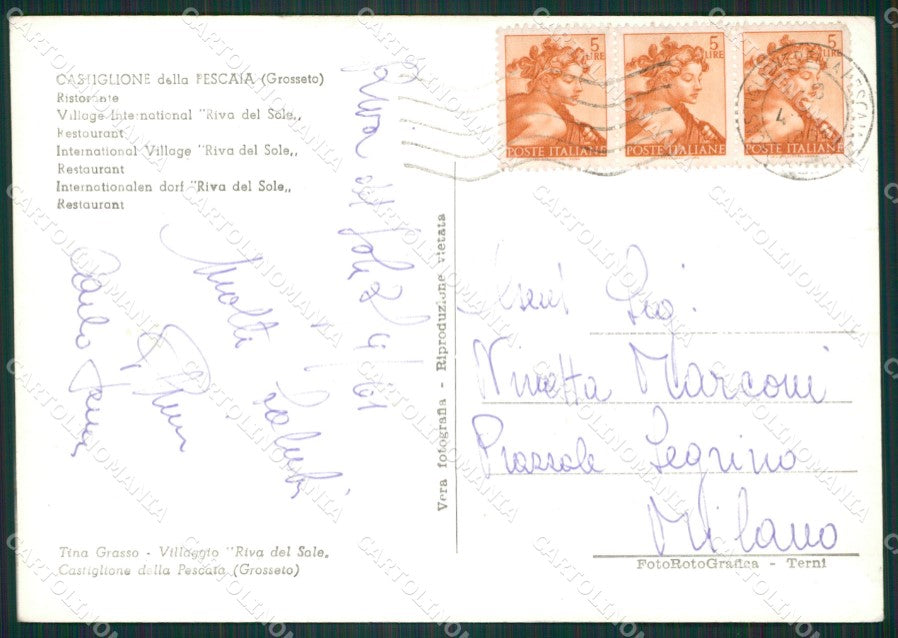 CASTIGLIONE della PESCAIA (Grosseto)
Ristorante
Village International "Riva del Sole„
Restaurant
International Village "Riva del Sole„
Restaurant
Internationalen dorf "Riva del Sole„
Restaurant
5
LIRE
POSTE ITALIANE
5
LIRE
POSTE ITALIANE
5
LIRE
POSTE ITALIANE
Riva del Sole 2/9/61
Molti saluti
Vera fotografia - Riproduzione vietata
Ninetta Marconi
Piazzale Segrino
Milano
Tina Grasso - Villaggio "Riva del Sole„
Castiglione della Pescaia (Grosseto)
FotoRotoGrafica - Terni
CARTOLINOMANIA